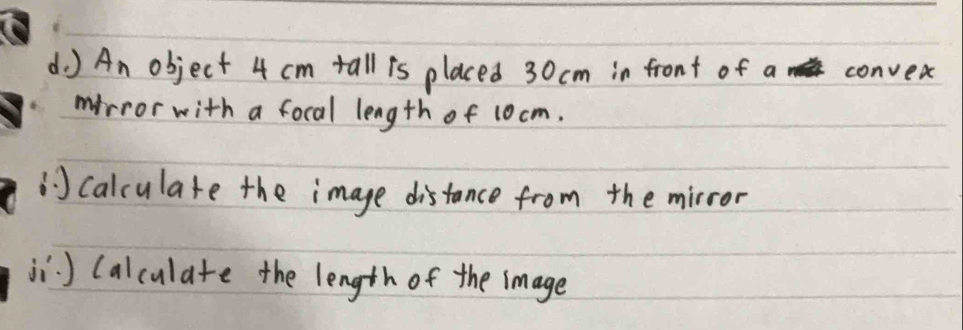 d.) An object 4 cm tall is placed 30cm in front of a convex
mirror with a focal length of 10cm.
i.) Calculate the image distance from the mirror
ii.) Calculate the length of the image